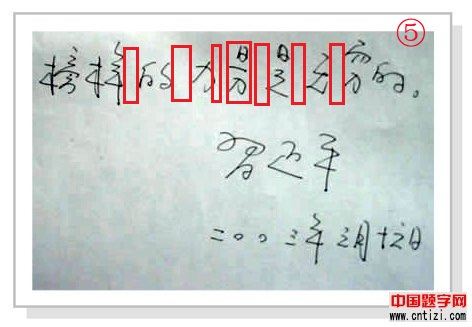 ⑤
榜样的力量是无穷的。
习近平
二〇〇三年三月日
中国题字网
www.cntizi.com